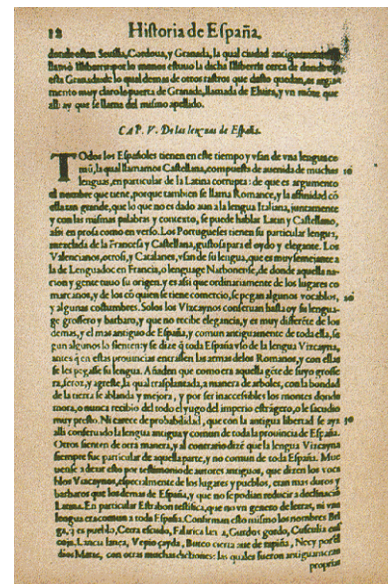 12 Historia de España,
donde estan Seuilla, Cordoua, y Granada, la qual ciudad
llamò Illiberris: por lo menos estuuo la dicha Illiberris cerca de donde
esta Granada: de lo qual demas de otros rastros que desto quedan, es argu-
mento muy claro la puerta de Granada, llamada de Eluira, y vn mõte que
alli ay que se llama del mismo apellido.
CAP. V. De las lenguas de España.
TOdos los Españoles tienen en este tiempo y vsan de vna lengua co-
mũ, la qual llamamos Castellana, compuesta de auenida de muchas 10
lenguas, en particular de la Latina corrupta: de que es argumento
el nombre que tiene, porque tambien se llama Romance, y la affinidad cõ
ella tan grande, que lo que no es dado aun a la lengua Italiana, juntamente
y con las mismas palabras y contexto, se puede hablar Latin y Castellano,
assi en prosa como en verso. Los Portugueses tienen su particular lengua,
mezclada de la Francesa y Castellana, gustosa para el oydo y elegante. Los
Valencianos, otrosi, y Catalanes, vsan de su lengua, que es muy semejante a
la de Lenguadoc en Francia, o lenguage Narbonense, de donde aquella na-
cion y gente tuuo su origen, y es assi que ordinariamente de los lugares co
marcanos, y de los cõ quien se tiene comercio, se pegan algunos vocablos, 20
y algunas costumbres. Solos los Vizcaynos conseruan hasta oy su lengua-
ge grossero y barbaro, y que no recibe elegancia, y es muy differẽte de los
demas, y el mas antiguo de España, y comun antiguamente de toda ella, se
gun algunos lo sienten: y se dize q̃ toda España vso de la lengua Vizcayna,
antes q̃ en estas prouincias entrassen las armas de los Romanos, y con ellas
se les pegasse su lengua. Añaden que como era aquella gẽte de suyo grosse
ra, feroz, y agreste, la qual trasplantada, a manera de arboles, con la bondad
de la tierra se ablanda y mejora, y por ser inaccessibles los montes donde
mora, o nunca recibio del todo el yugo del imperio estrãgero, o le sacudio
muy presto. Ni carece de probabilidad, que con la antigua libertad se aya 30
alli conseruado la lengua antigua y comun de toda la prouincia de España.
Otros sienten de otra manera, y al contrario dizẽ que la lengua Vizcayna
siempre fue particular de aquella parte, y no comun de toda España. Mue
uense a dezir esto por testimonio de autores antiguos, que dizen los voca
blos Vizcaynos, especialmente de los lugares y pueblos, eran mas duros y
barbaros que los demas de España, y que no se podian reducir a declinaciõ
Latina. En particular Estrabon testifica, que no vn genero de letras, ni vna
lengua era comun a toda España. Confirman esto mismo los nombres Bri
ga, q̃ es pueblo, Cetra escudo, Falarica lança, Gurdus gordo, Cusculia cos
coja, Lancia lança, Vipio çayda, Buteo cierta aue de rapiña, Necy por el
dios Marte, con otras muchas dictiones: las quales fueron antiguamente
proprias